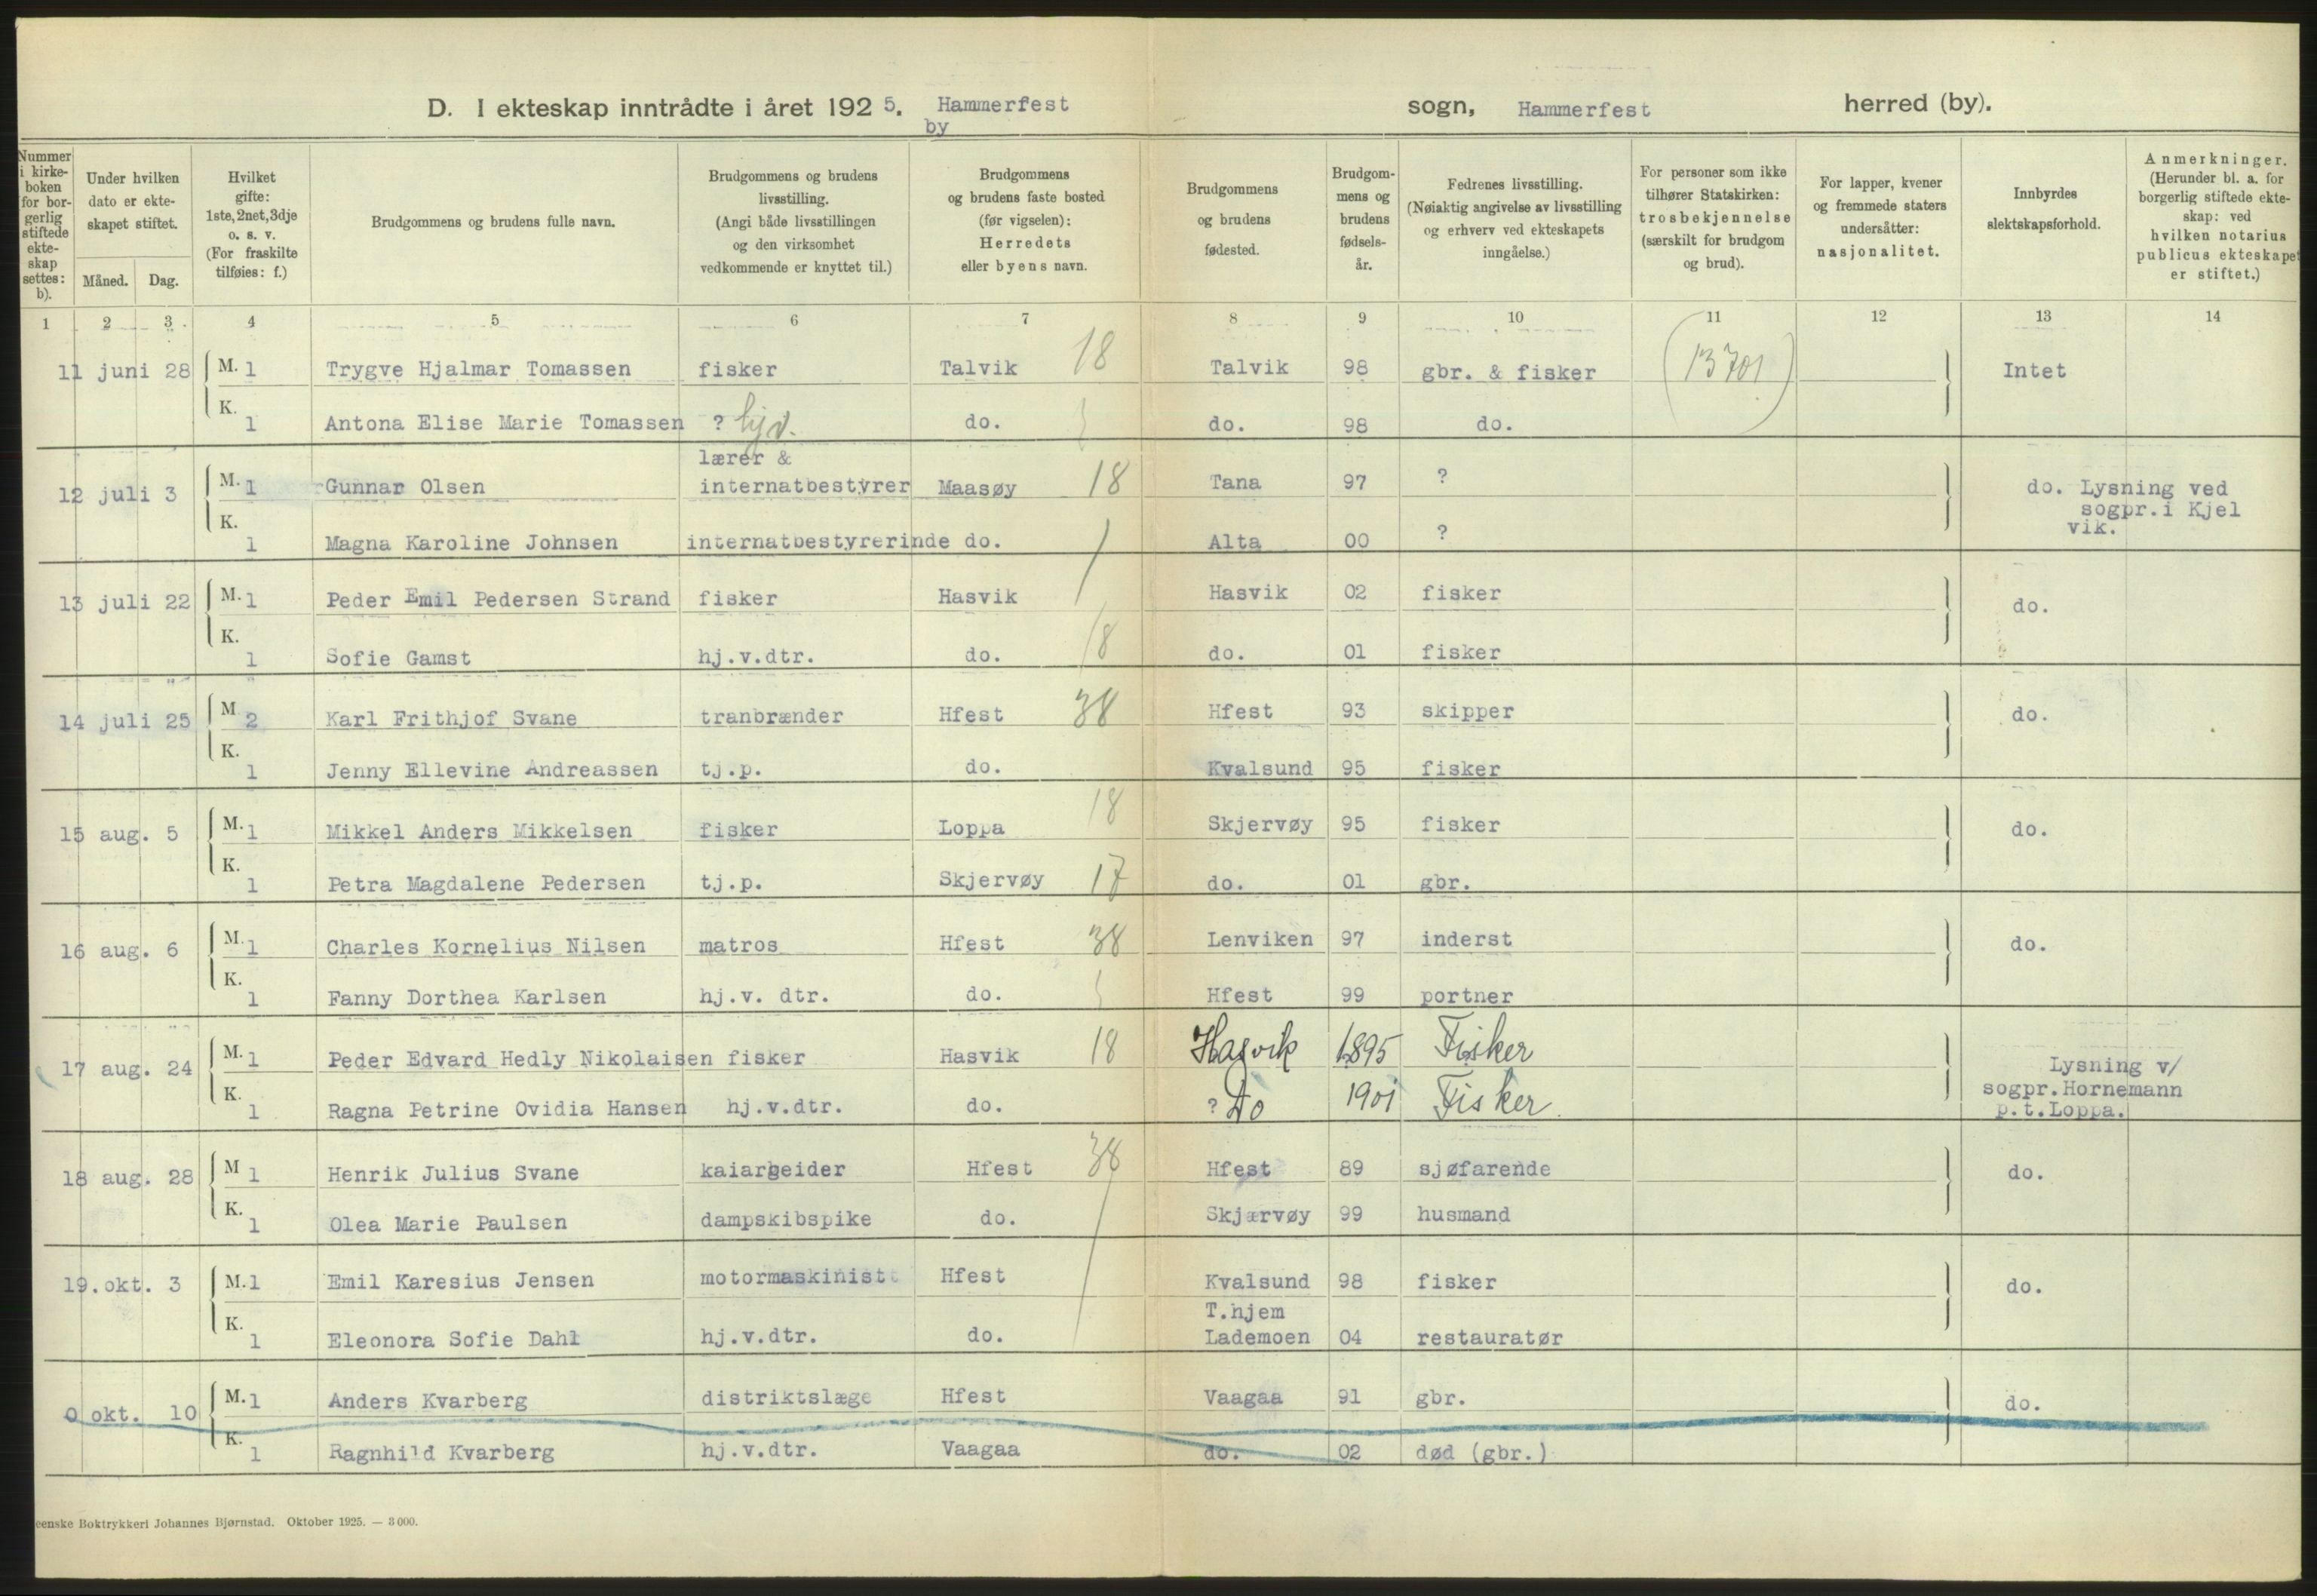 D. I ekteskap inntrådte i året 1925. Hammerfest sogn, Hammerfest herred (by).
by
Nummer i kirke- boken for bor- gerlig stiftede ekte- skap settes: b).
Under hvilken dato er ekte- skapet stiftet.
Måned. Dag.
Hvilket gifte: 1ste, 2net, 3dje o. s. v. (For fraskilte tilføies: f.)
Brudgommens og brudens fulle navn.
Brudgommens og brudens livsstilling. (Angi både livsstillingen og den virksomhet vedkommende er knyttet til.)
Brudgommens og brudens faste bosted (før vigselen): Herredets eller byens navn.
Brudgommens og brudens fødested.
Brudgom- mens og brudens fødsels- år.
Fedrenes livsstilling. (Nøiaktig angivelse av livsstilling og erhverv ved ekteskapets inngåelse.)
For personer som ikke tilhører Statskirken: trosbekjennelse (særskilt for brudgom og brud).
For lapper, kvener og fremmede staters undersåtter: nasjonalitet.
Innbyrdes slektskapsforhold.
Anmerkninger. (Herunder bl. a. for borgerlig stiftede ekte- skap: ved hvilken notarius publicus ekteskapet er stiftet.)
1 2 3 4 5 6 7 8 9 10 11 12 13 14
11 juni 28 M. 1 Trygve Hjalmar Tomassen fisker Talvik 18 Talvik 98 gbr. & fisker (13701) Intet
K. 1 Antona Elise Marie Tomassen ? hjv. do. do. 98 do.
lærer &
12 juli 3 M. 1 Gunnar Olsen internatbestyrer Maasøy 18 Tana 97 ? do. Lysning ved
sogpr. i Kjel
vik.
K. 1 Magna Karoline Johnsen internatbestyrerinde do. Alta 00 ?
13 juli 22 M. 1 Peder Emil Pedersen Strand fisker Hasvik Hasvik 02 fisker do.
K. 1 Sofie Gamst hj.v.dtr. do. 18 do. 01 fisker
14 juli 25 M 2 Karl Frithjof Svane tranbrænder Hfest 38 Hfest 93 skipper do.
K. 1 Jenny Ellevine Andreassen tj.p. do. Kvalsund 95 fisker
15 aug. 5 M. 1 Mikkel Anders Mikkelsen fisker Loppa 18 Skjervøy 95 fisker do.
K. 1 Petra Magdalene Pedersen tj.p. Skjervøy 17 do. 01 gbr.
16 aug. 6 M. 1 Charles Kornelius Nilsen matros Hfest 38 Lenviken 97 inderst do.
K. 1 Fanny Dorthea Karlsen hj.v. dtr. do. Hfest 99 portner
17 aug. 24 M. 1 Peder Edvard Hedly Nikolaisen fisker Hasvik 18 Hasvik 1895 Fisker
Lysning v/
sogpr. Hornemann
p.t. Loppa.
K. 1 Ragna Petrine Ovidia Hansen hj.v.dtr. do. ? Do 1901 Fisker.
18 aug. 28 M 1 Henrik Julius Svane kaiarbeider Hfest 38 Hfest 89 sjøfarende do.
K. 1 Olea Marie Paulsen dampskibspike do. Skjærvøy 99 husmand
19. okt. 3 M. 1 Emil Karesius Jensen motormaskinist Hfest Kvalsund 98 fisker do.
T.hjem
K. 1 Eleonora Sofie Dahl hj.v.dtr. do. Lademoen 04 restauratør
0 okt. 10 M. 1 Anders Kvarberg distriktslæge Hfest Vaagaa 91 gbr. do.
K. 1 Ragnhild Kvarberg hj.v.dtr. Vaagaa do. 02 død (gbr.)
eenske Boktrykkeri Johannes Bjørnstad. Oktober 1925. — 3000.